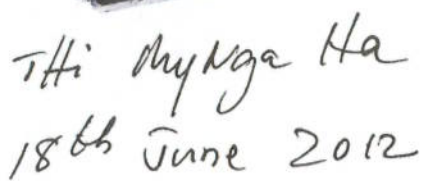 THi My Nga Ha
18th June 2012